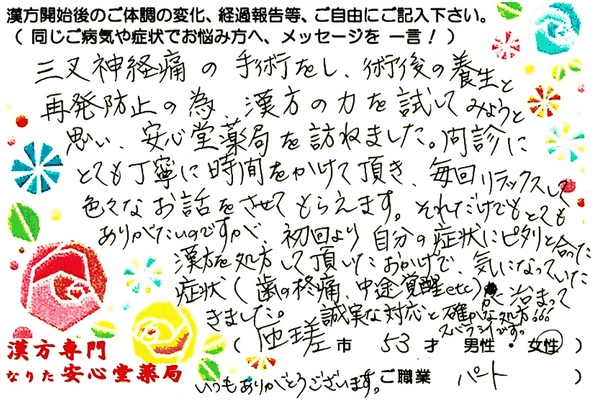 漢方開始後のご体調の変化、経過報告等、ご自由にご記入下さい。
( 同じご病気や症状でお悩み方へ、メッセージを 一言! )
三叉神経痛の手術をし、術後の養生と
再発防止の為、漢方の力を試してみようと
思い、安心堂薬局を訪ねました。問診に
とても丁寧に時間をかけて頂き、毎回リラックスして
色々なお話をさせてもらえます。それだけでもとても
ありがたいのですが、初回より自分の症状にピタリと合った
漢方を処方して頂いたおかげで、気になっていた
症状(歯の疼痛、中途覚醒etc)が治まって
きました。誠実な対応と確かな処方
スバラシイです。
( 匝瑳 市 53 才 男性・女性 )
漢方専門
なりた 安心堂薬局
いつもありがとうございます。
ご職業 パート )